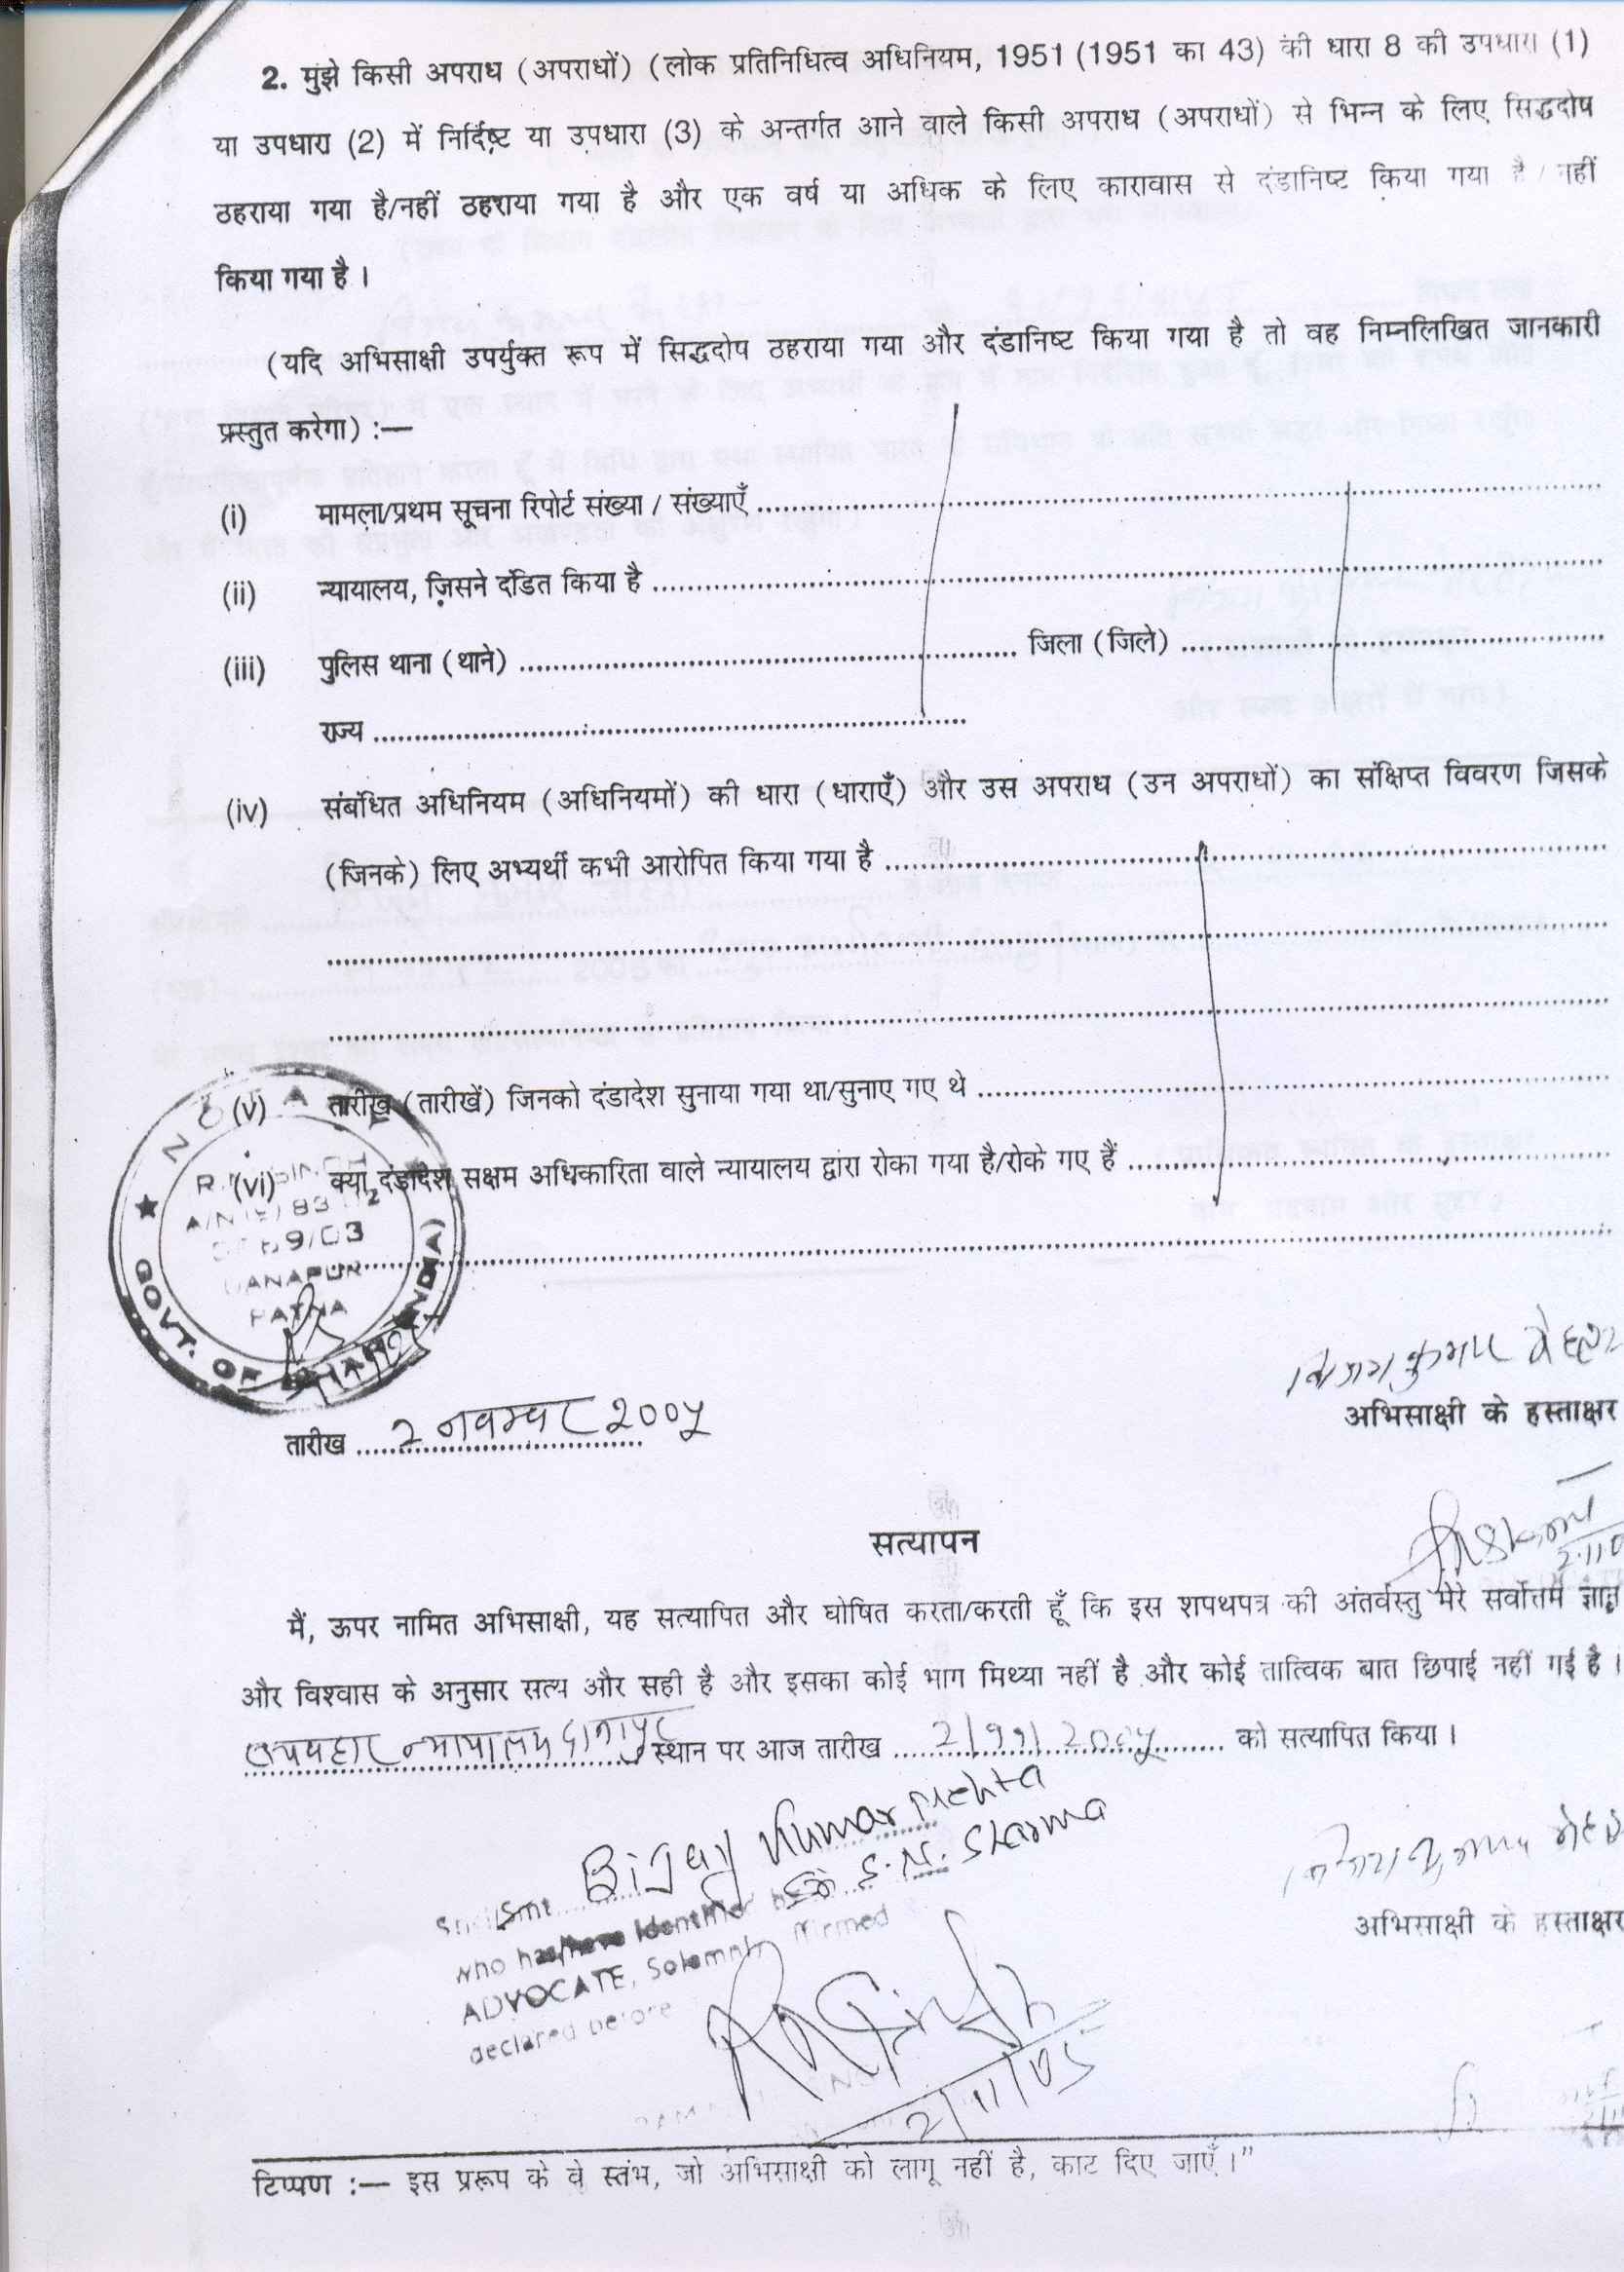 2. मुझे किसी अपराध (अपराधों) (लोक प्रतिनिधित्व अधिनियम, 1951 (1951 का 43) की धारा 8 की उपधारा (1)
या उपधारा (2) में निर्दिष्ट या उपधारा (3) के अन्तर्गत आने वाले किसी अपराध (अपराधों) से भिन्न के लिए सिद्धदोष
ठहराया गया है/नहीं ठहराया गया है और एक वर्ष या अधिक के लिए कारावास से दंडानिष्ट किया गया है / नहीं
किया गया है ।
(यदि अभिसाक्षी उपर्युक्त रूप में सिद्धदोष ठहराया गया और दंडानिष्ट किया गया है तो वह निम्नलिखित जानकारी
प्रस्तुत करेगा) :—
(i) मामला/प्रथम सूचना रिपोर्ट संख्या / संख्याएँ
(ii) न्यायालय, जिसने दंडित किया है
(iii) पुलिस थाना (थाने) जिला (जिले)
राज्य
(iv) संबंधित अधिनियम (अधिनियमों) की धारा (धाराएँ) और उस अपराध (उन अपराधों) का संक्षिप्त विवरण जिसके
(जिनके) लिए अभ्यर्थी कभी आरोपित किया गया है
(v) तारीख (तारीखें) जिनको दंडादेश सुनाया गया था/सुनाए गए थे
(vi) क्या दंडादेश सक्षम अधिकारिता वाले न्यायालय द्वारा रोका गया है/रोके गए हैं
DANAPUR
PATNA
GOVT. OF BIHAR (INDIA)
विजय कुमार मेहता
अभिसाक्षी के हस्ताक्षर
तारीख 2 नवम्बर 2००५
सत्यापन
मैं, ऊपर नामित अभिसाक्षी, यह सत्यापित और घोषित करता/करती हूँ कि इस शपथपत्र की अंतर्वस्तु मेरे सर्वोत्तम ज्ञान
और विश्वास के अनुसार सत्य और सही है और इसका कोई भाग मिथ्या नहीं है और कोई तात्विक बात छिपाई नहीं गई है ।
व्यवहार न्यायालय दानापुर स्थान पर आज तारीख 2/११/2००५ को सत्यापित किया ।
Bijay Kumar Mehta
Shri/Smt
S.N. Sharma
who has/have Identified by
ADVOCATE, Solemnly Affirmed
declared before
विजय कुमार मेहता
अभिसाक्षी के हस्ताक्षर
2/11/05
टिप्पण :— इस प्ररूप के वे स्तंभ, जो अभिसाक्षी को लागू नहीं है, काट दिए जाएँ ।”